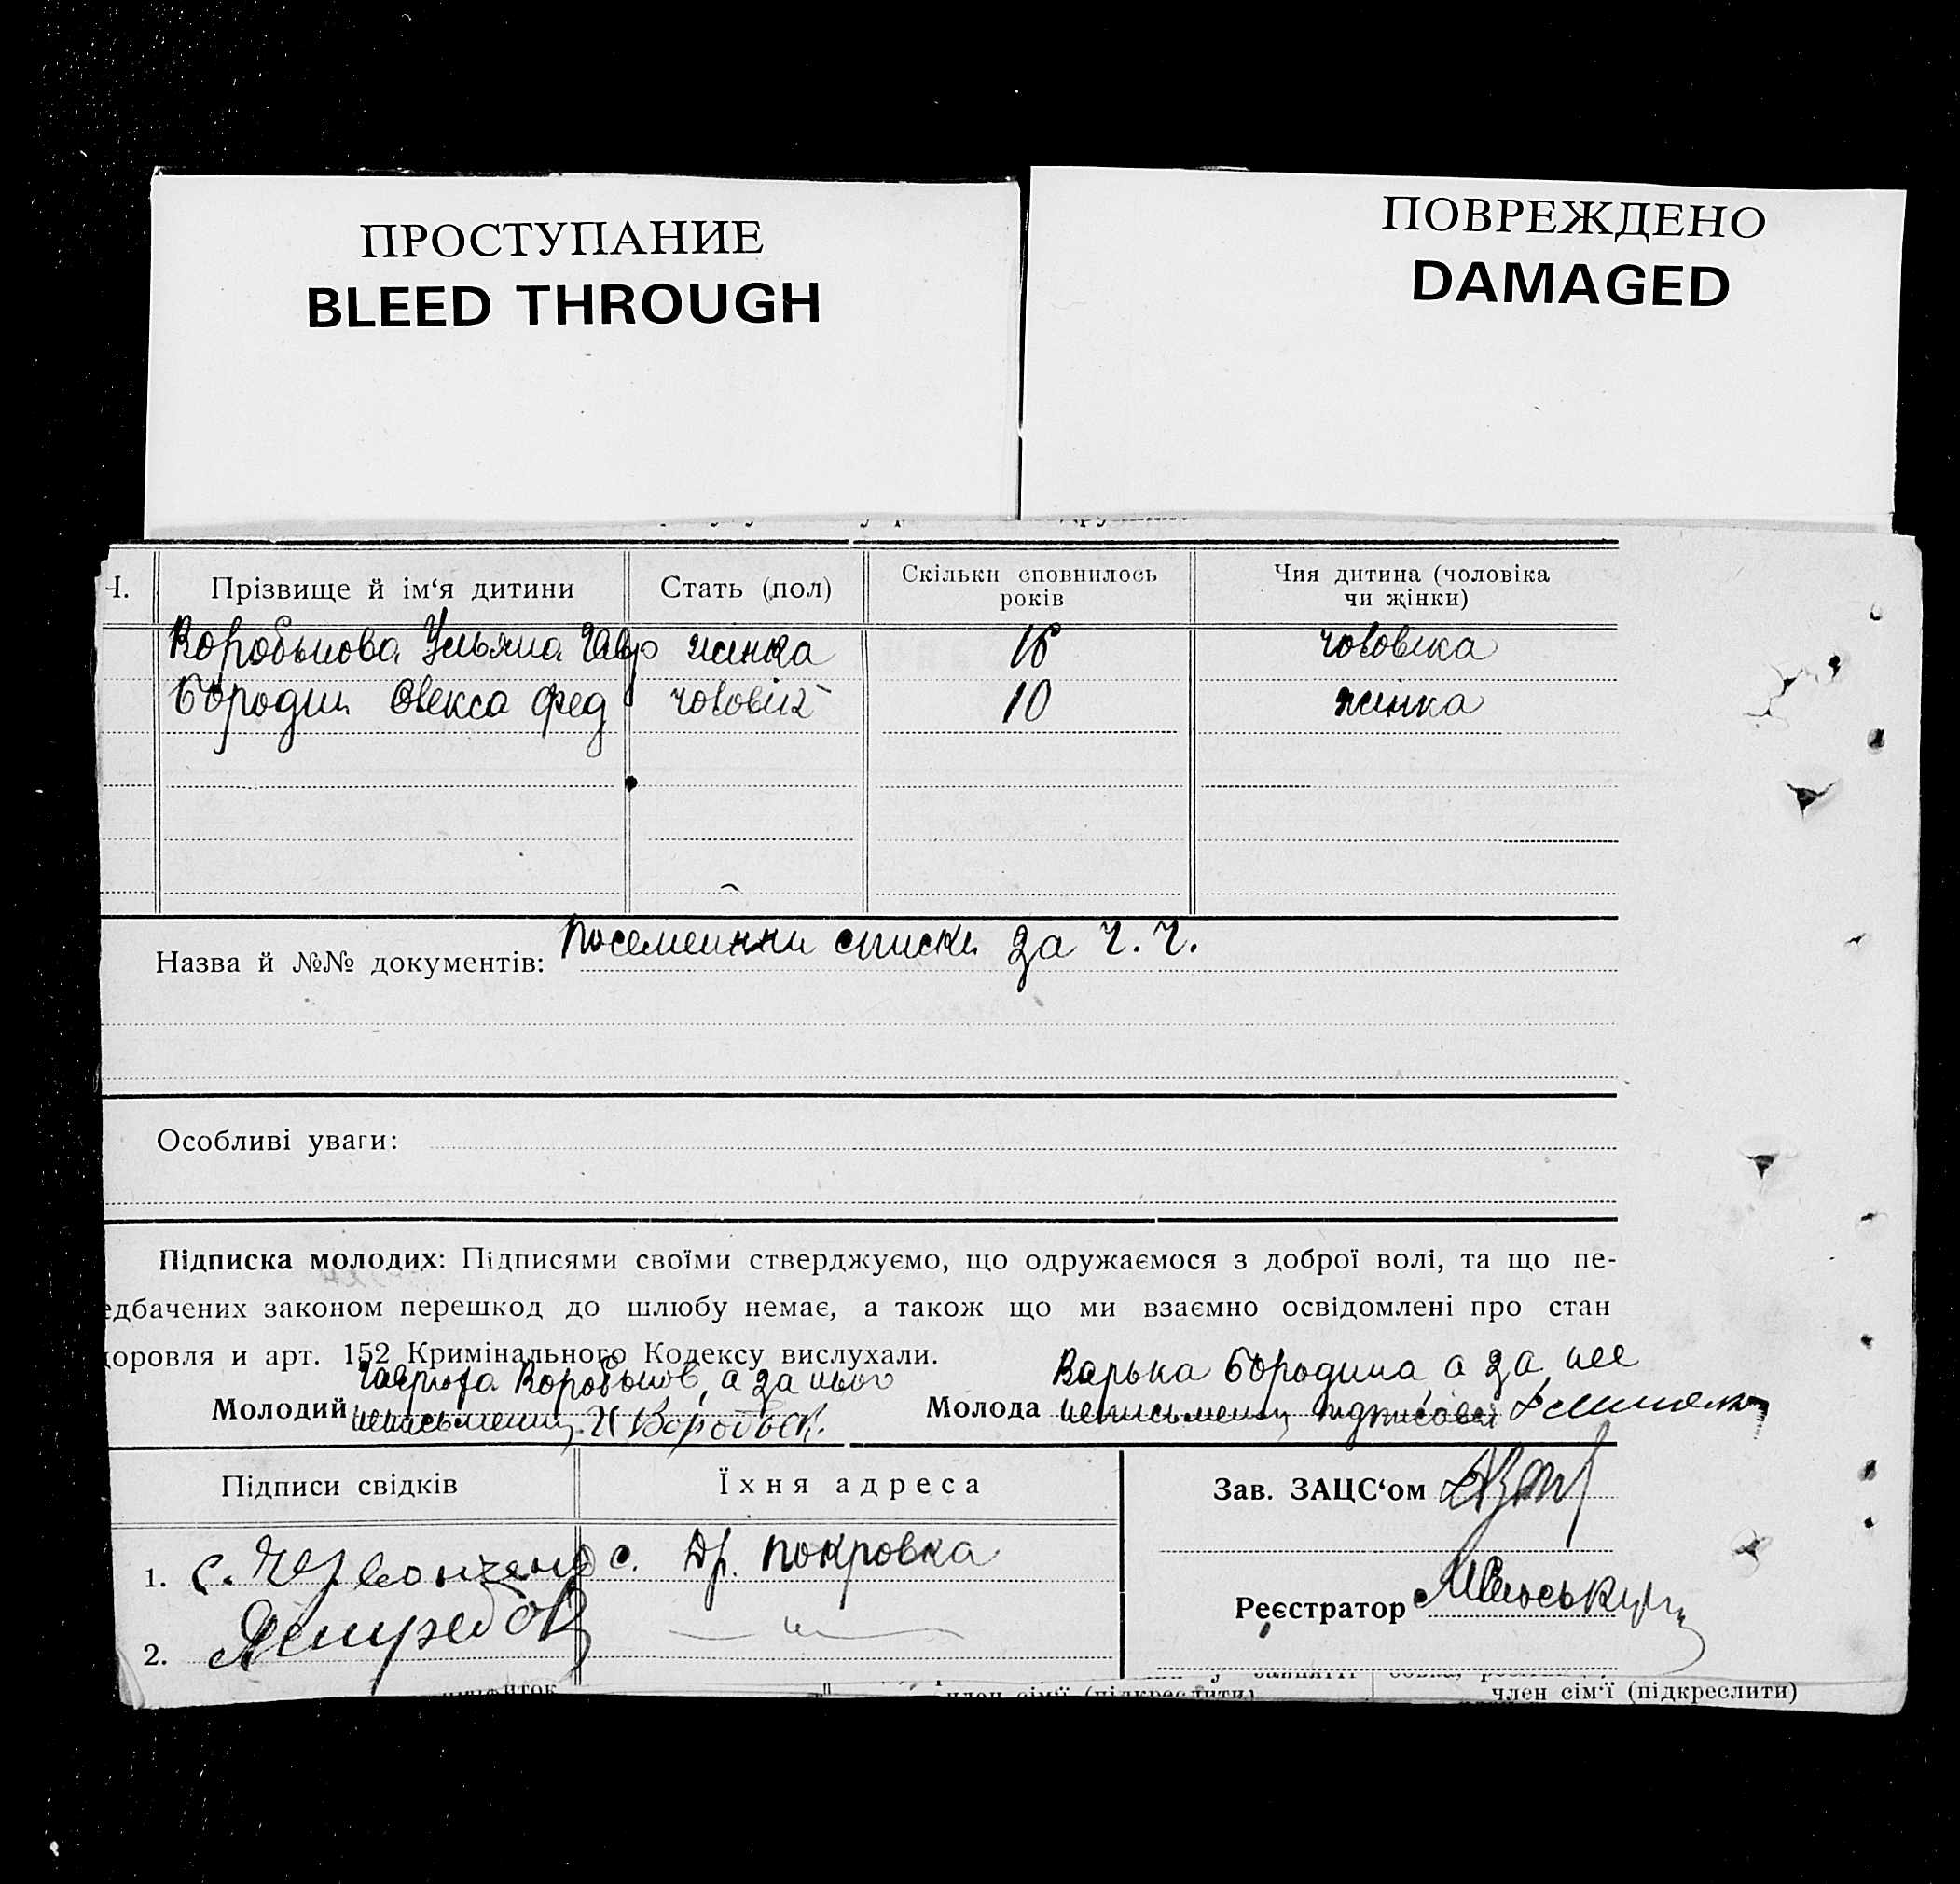 ПРОСТУПАНИЕ
BLEED THROUGH
ПОВРЕЖДЕНО
DAMAGED
Ч. Прізвище й ім‘я дитини Стать (пол) Скільки сповнилось років Чия дитина (чоловіка чи жінки)
Воробьиова Ульяна Гавр жинка 16 чоловіка
Бородин Олекса Фед чоловік 10 жинка
Назва й №№ документів: посемеинни списки за ч. ч.
Особливі уваги:
Підписка молодих: Підписями своїми стверджуємо, що одружаємося з доброї волі, та що пе-
едбачених законом перешкод до шлюбу немає, а також що ми взаємно освідомлені про стан
доровля и арт. 152 Кримінального Кодексу вислухали.
Гаврюха Воробьиов, а за нього Варька Бородина а за нее
Молодий неписьменну Молода неписьменну
Підписи свідків Їхня адреса Зав. ЗАЦС‘ом
1. с. Др. Покровка
Реєстратор
2. — „ —
член сім‘ї (підкреслити) член сім‘ї (підкреслити)